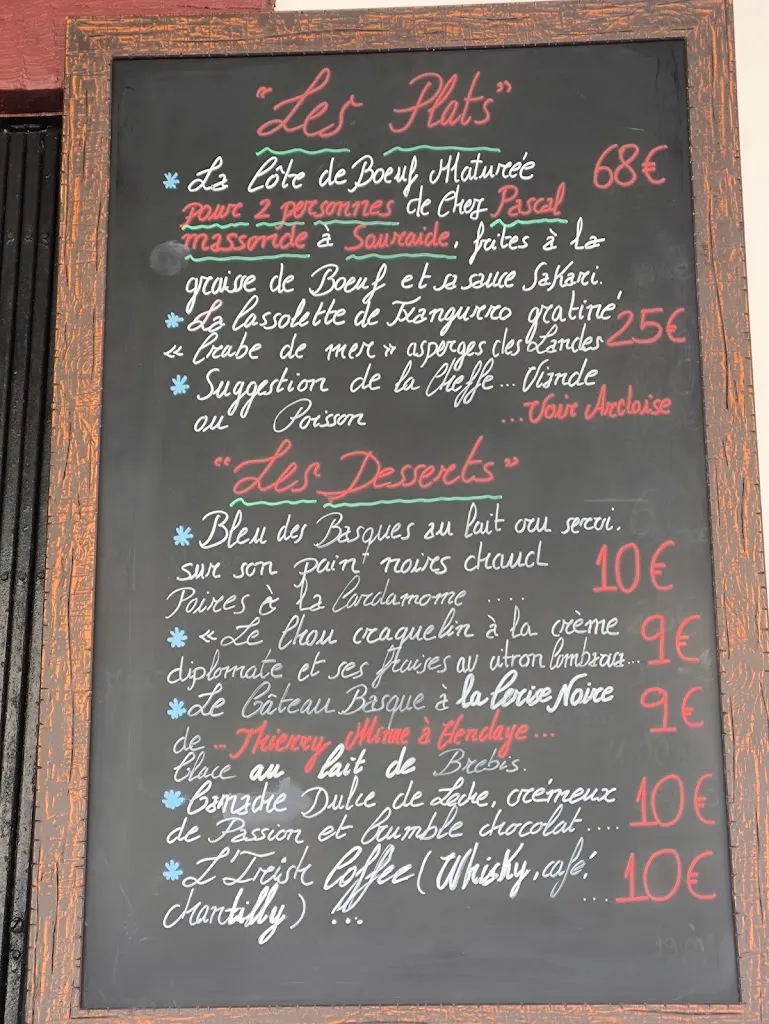 "Les Plats"
* La Côte de Boeuf Maturée 68€
pour 2 personnes de Chez Pascal
massonde à Souraide, frites à la
graisse de Boeuf et sa sauce Sakari.
* La Cassolette de Txangurro gratiné
« Crabe de mer » asperges des Landes 25€
* Suggestion de la Cheffe... Viande
ou Poisson ...Voir Ardoise
"Les Desserts"
* Bleu des Basques au lait cru servi.
sur son pain noirs chaud 10€
Poires à la Cardamome ....
* « Le Chou craquelin à la crème 9€
diplomate et ses fraises au citron Combava...
* Le Gâteau Basque à la Cerise Noire 9€
de ... Thierry Mimie à Hendaye ...
Glace au lait de Brebis.
* Ganache Dulce de Leche, crémeux 10€
de Passion et Crumble chocolat ....
* L'Irish Coffee (Whisky, café, ... 10€
chantilly) ...